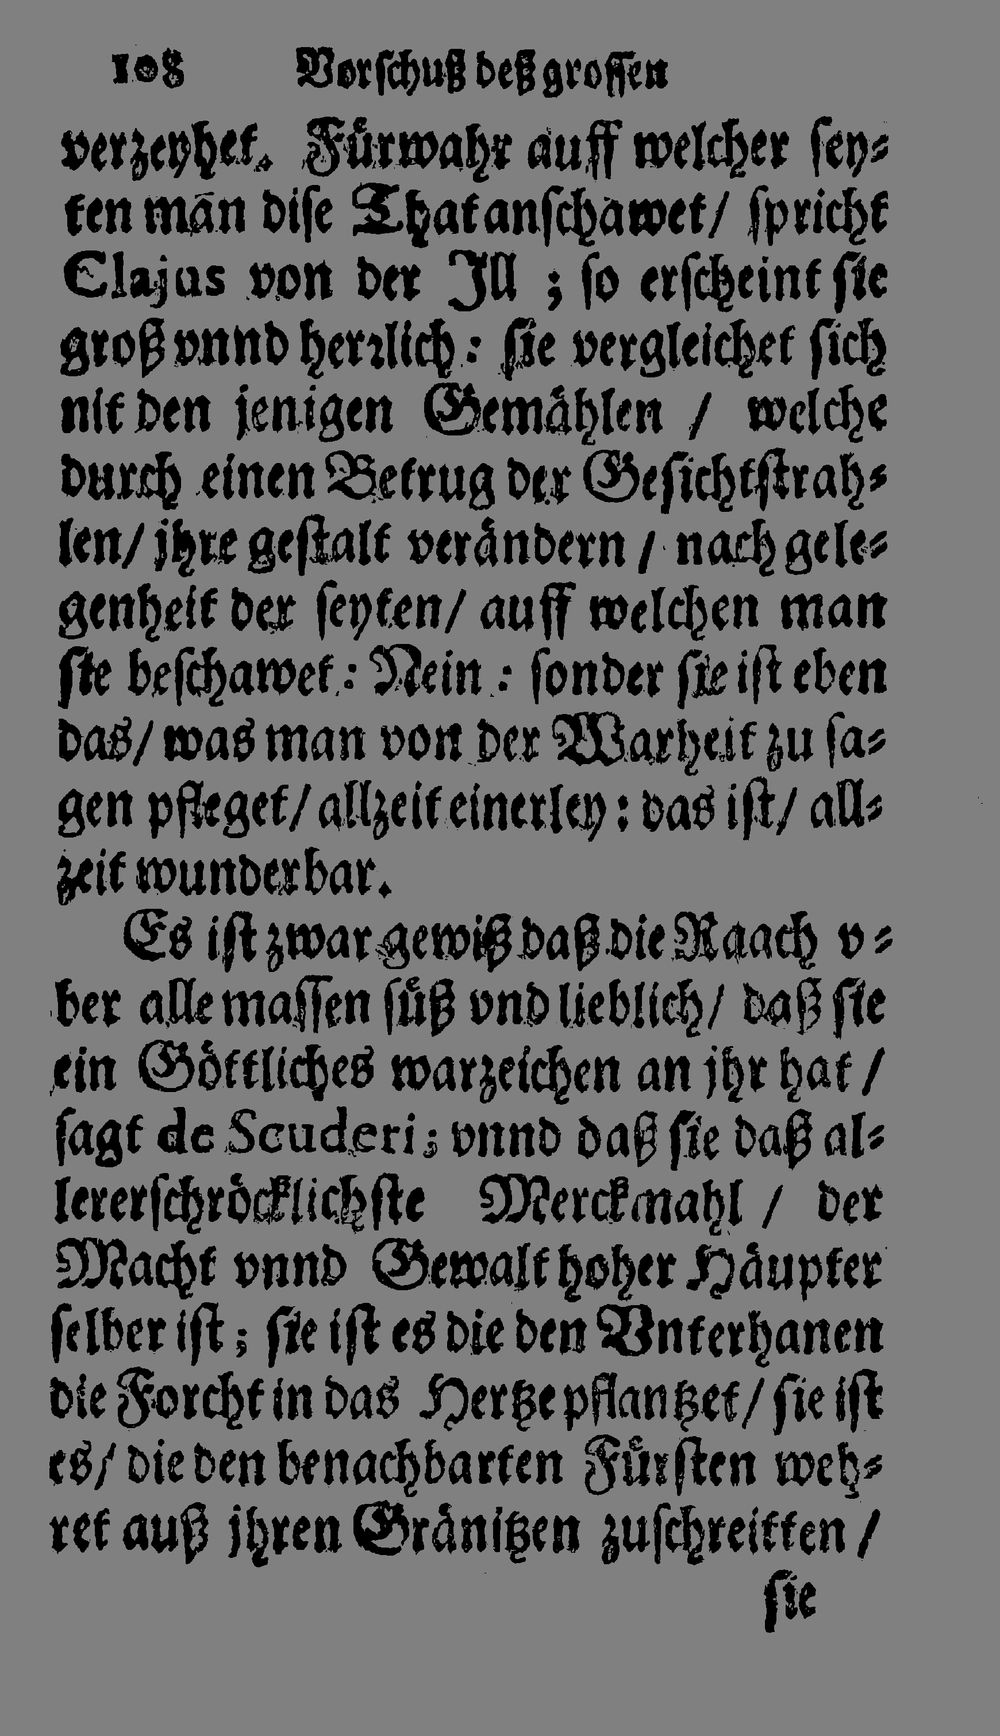 108 Vorschuß deß grossen
verzeyhet. Fürwahr auff welcher sey⸗
ten mān dise That anschawet/ spricht
Clajus von der Ill ; so erscheint sie
groß vnnd herꝛlich: sie vergleichet sich
nit den jenigen Gemählen / welche
durch einen Betrug der Gesichtstrah⸗
len/ jhre gestalt verändern / nach gele⸗
genheit der seyten/ auff welchen man
sie beschawet: Nein : sonder sie ist eben
das/ was man von der Warheit zu sa⸗
gen pfleget/ allzeit einerley: das ist/ all⸗
zeit wunderbar.
Es ist zwar gewiß daß die Raach v⸗
ber alle massen süß vnd lieblich/ daß sie
ein Göttliches warzeichen an jhr hat /
sagt de Scuderi; vnnd daß sie daß al⸗
lererschröcklichste Merckmahl / der
Macht vnnd Gewalt hoher Häupter
selber ist; sie ist es die den Vnterhanen
die Forcht in das Hertze pflantzet/ sie ist
es/ die den benachbarten Fürsten weh⸗
ret auß jhren Gränitzen zuschreitten /
sie